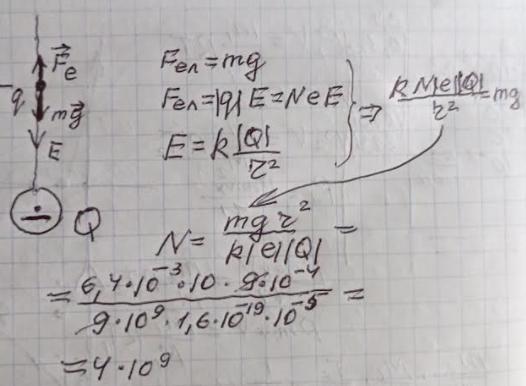 F⃗e
-q
mg⃗
E
Q
Fел = mg
Fел = |q|E = NeE
E = k |Q| / r²
} ⇒ kN|e||Q| / r² = mg
N = mgr² / k|e||Q| =
= 6,4·10⁻³·10·9·10⁻⁴ / 9·10⁹·1,6·10⁻¹⁹·10⁻⁵ =
= 4·10⁹